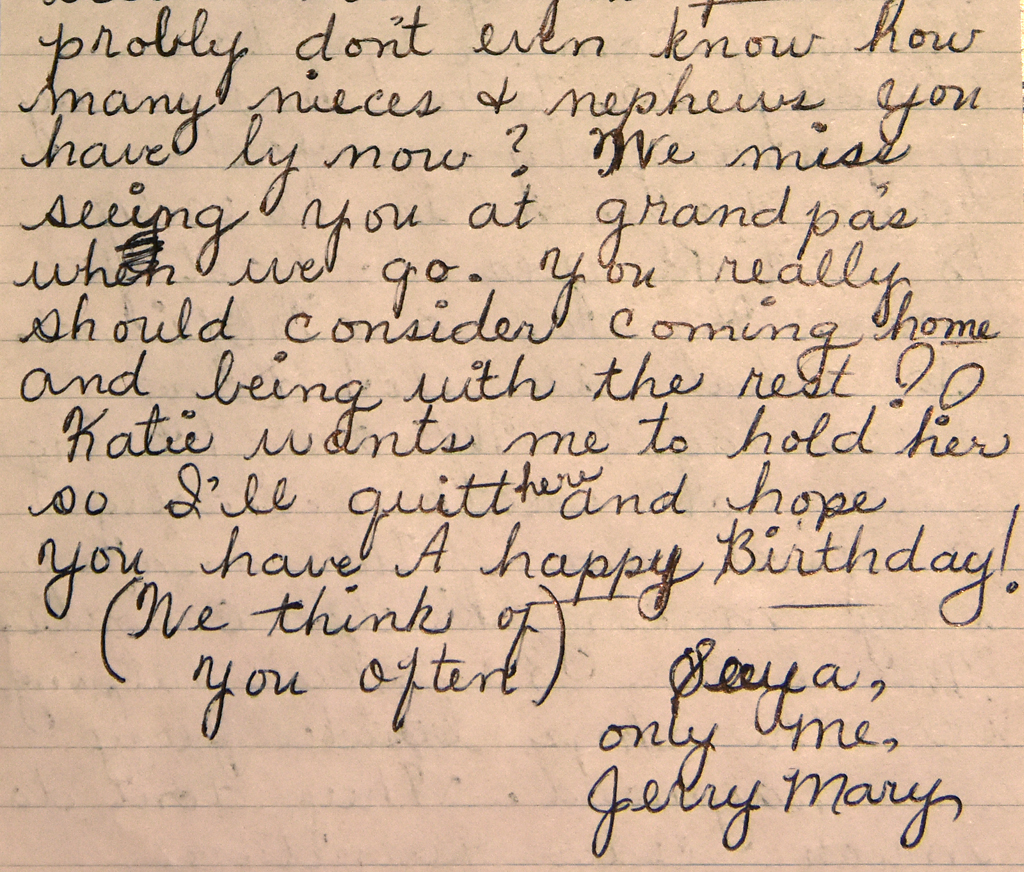 probly don't even know how
many nieces & nephews you
have by now? We miss
seeing you at grandpa's
when we go. You really
should consider coming home
and being with the rest?
Katie wants me to hold her
so I'll quitt here and hope
you have A happy Birthday!
(We think of
you often)
Seeya,
only me,
Jerry Mary,